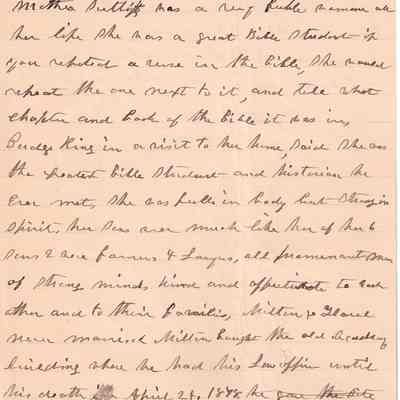 Mother Sutliff was a very feeble woman all
her life she was a great Bible Student if
you repeated a verse in the Bible, She would
repeat the one next to it, and tell what
Chapter and Book of the Bible it was in,
King in a visit to her home, said She was
the greatest Bible Student and historian he
Ever met, she was feeble in body but Strong in
Spirit, her Sons were much like her of her 6
Sons 2 were farmers 4 Lawyers, all prominent men
of strong minds kind and affectionate to Each
other and to their families, Milton &
never married Milton bought the old Academy
building where he had his Law office until
his death April 24, 1878 he gave the Site